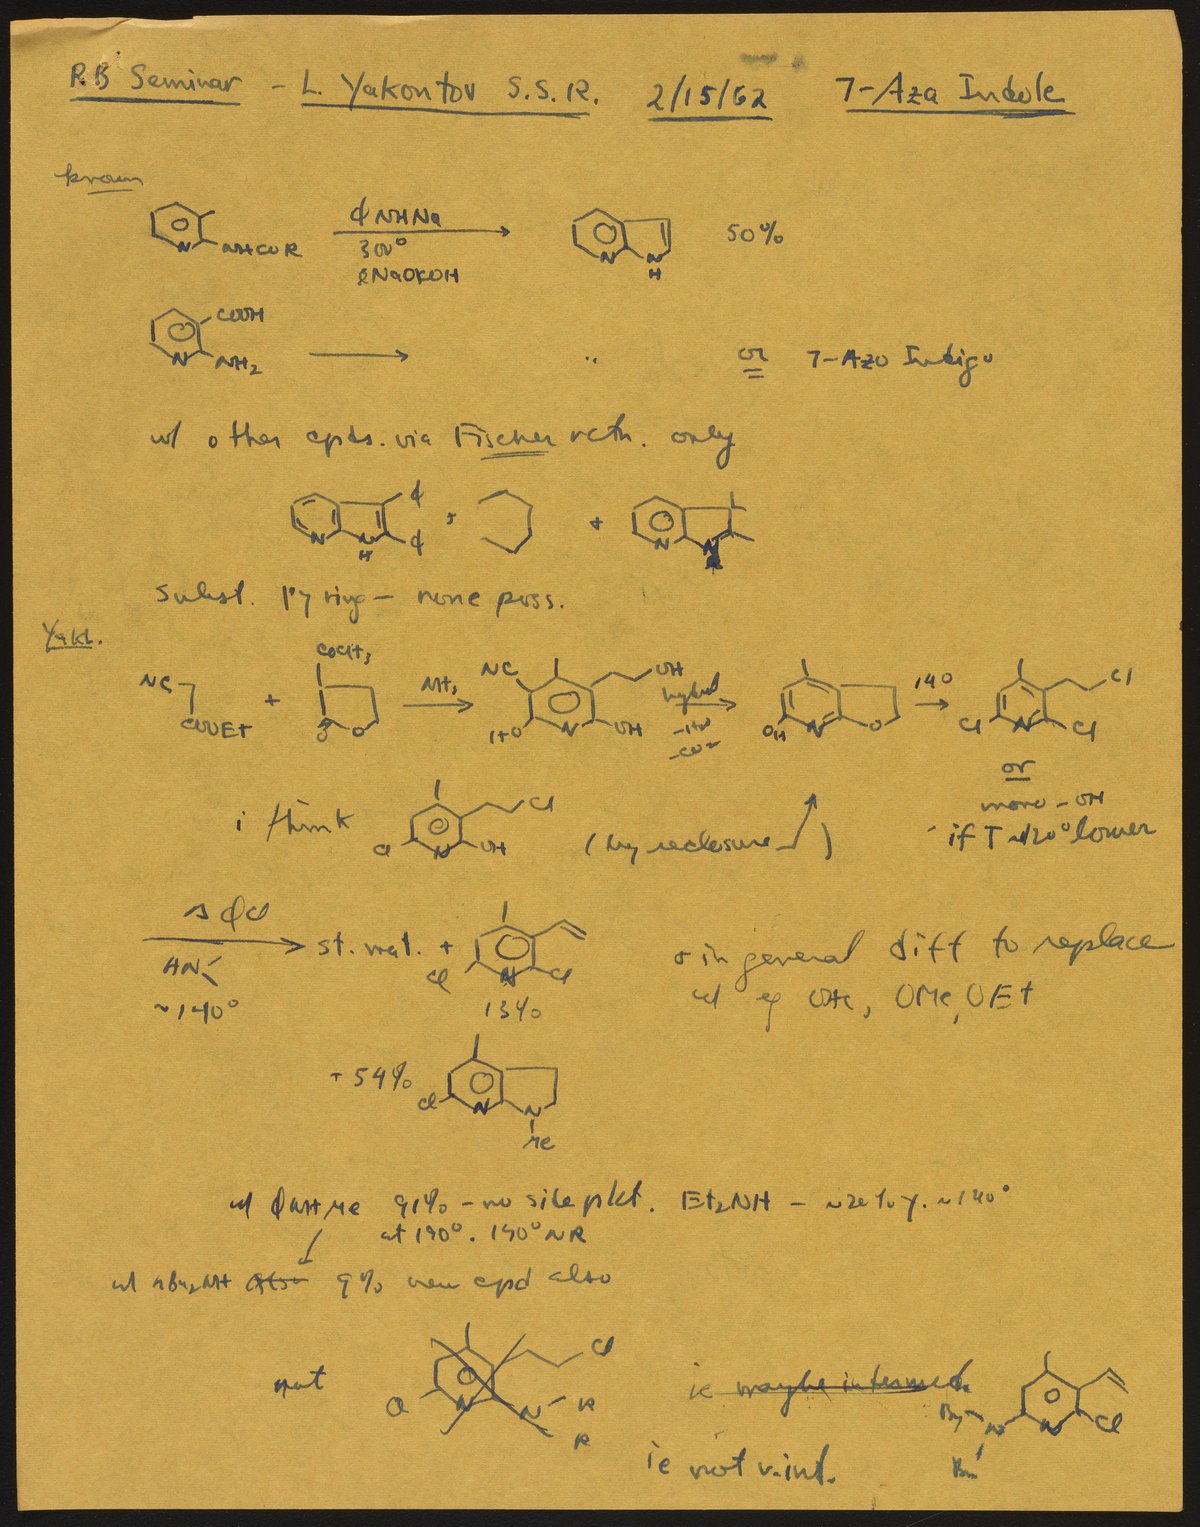 R.B Seminar - L. Yakontov S.S.R. 2/15/62 7-Aza Indole
known
ɸNHNa
300°
N NHCOR N N H 50%
COOH
N NH₂ " or 7-Azo Indigo
w/ other cpds. via Fischer rctn. only
N N H ɸ ɸ + + N N
subst. py ring - none poss.
Yakh.
NC COOEt + COCH₃ O O NH₃ NC OH HO N OH hydrol OH N O 140 Cl N Cl Cl
or
mono-OH
if T ~120° lower
i think Cl Cl N OH (by reclosure)
~140°
st. mat. + Cl N Cl
13%
+ in general diff to replace
w/ eg OMe, OEt
+ 54% Cl N N Me
w/ ɸNHMe 91% - no side pdt. Et₂NH - ~20% y. ~140°
at 190°. 140° NR
w/ nBu₂NH 9% new cpd also
not Cl Cl N N R R
ie maybe intermed.
Bu N Bu N Cl
ie not v. int.